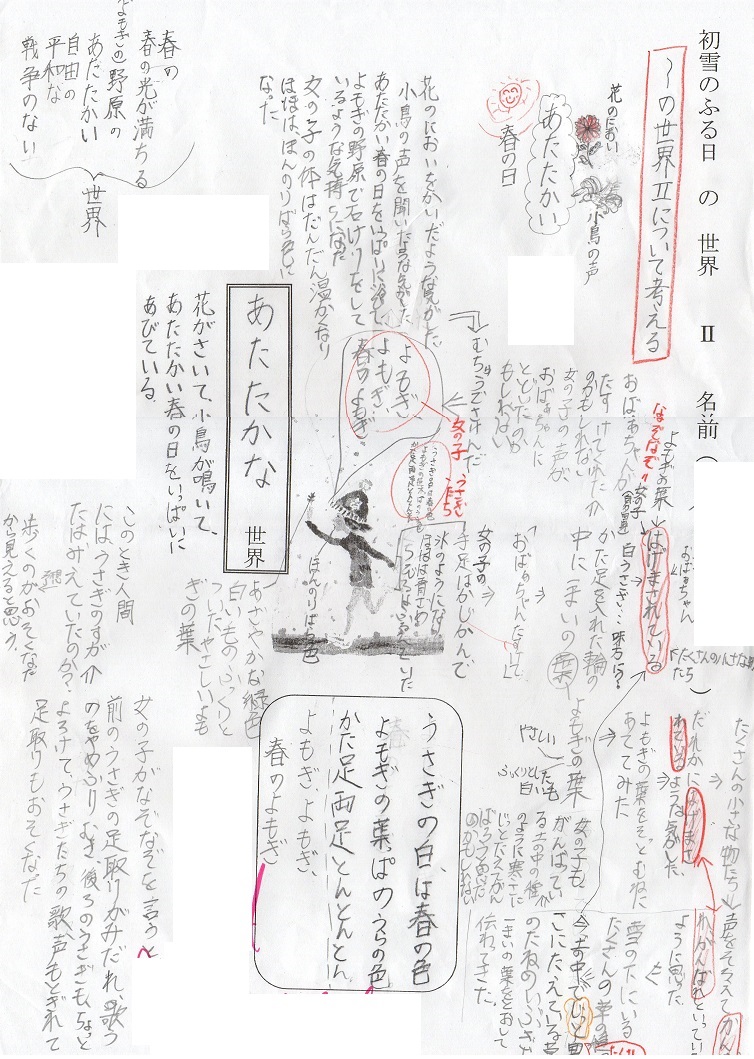 初雪のふる日 の 世界 Ⅱ 名前（ ）
〜の世界Ⅱについて考える
花のにおい
小鳥の声
あたたかい
春の日
花のにおいをかいだような気がした
小鳥の声を聞いたような気がした
あたたかい春の日をいっぱいに浴びて
よもぎの野原で石けりをして
いるような気持ちになった
女の子の体はだんだん温かくなり
ほほは、ほんのりばら色に
なった
春の
春の光が満ちる
（よもぎの）野原の
あたたかい
自由の
平和な
戦争のない
世界
おばあちゃん
よもぎの葉
なぞなぞで
女の子
はげまされている
白うさぎ…味方に？
おばあちゃんが
たすけてくれた
のかもしれない
女の子の声が
おばあちゃんに
とどいたのか
もしれない
むちゅうでさけんだ
よもぎ、
よもぎ、
春のよもぎ。
女の子
うさぎたち
あたたかな 世界
花がさいて、小鳥が鳴いて、
あたたかい春の日をいっぱいに
あびている。
ほんのりばら色
かた足を入れた輪の
中に一まいの葉
おばあちゃんたすけて
女の子の
手足はかじかんで
氷のようになり
ほほは青ざめ
くちびるはふるえていた
よもぎの葉
やさしい
ふっくりとした
白い毛
あざやかな緑色
白いもの ふっくりと
ついた やさしいよも
ぎの葉
このとき人間
にはうさぎのすがが
たはみえていたのか？
歩くのがおそくなた
から見えると思う。
うさぎの白は春の色
よもぎの葉っぱのうらの色
かた足両足とんとんとん
よもぎ、よもぎ、
春のよもぎ
女の子がなぞなぞを言う
前のうさぎの足取りがみだれ、歌う
のをやめふりむき 後ろのうさぎもちょっと
よろけて、うさぎたちの歌声もとぎれて
足取りもおそくなた
たくさんの小さな物たち
だれかにはげまさ
れている
ような気がした、
よもぎの葉をそっとむねに
あててみた
声をそろえて
がんばれといってい
ように思った
雪の下にいる
たくさんの草の
今土の中でじっと
さにたえている草
のたねのいぶきが
一まいの葉をとおして
伝わてきた。
女の子も
がんばってい
る土の中の種
のように寒さに
じっとたえてがん
ばろうと思った
のかもしれない